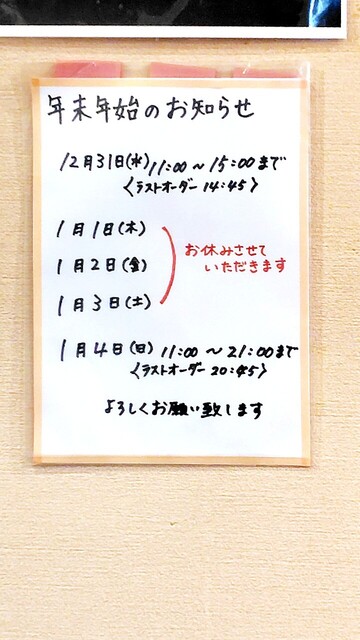 年末年始のお知らせ
12月31日(水) 11:00～15:00まで
〈ラストオーダー 14:45〉
1月1日(木)
1月2日(金)
1月3日(土)
お休みさせて
いただきます
1月4日(日) 11:00～21:00まで
〈ラストオーダー 20:45〉
よろしくお願い致します